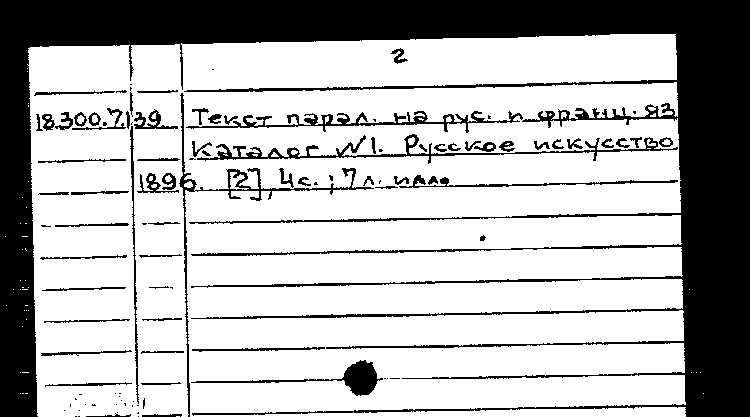 2
18.300.7.139 Текст парал. на рус. и франц. яз
Каталог №1. Русское искусство
1896. [2], 4с. ; 7 л. илл.